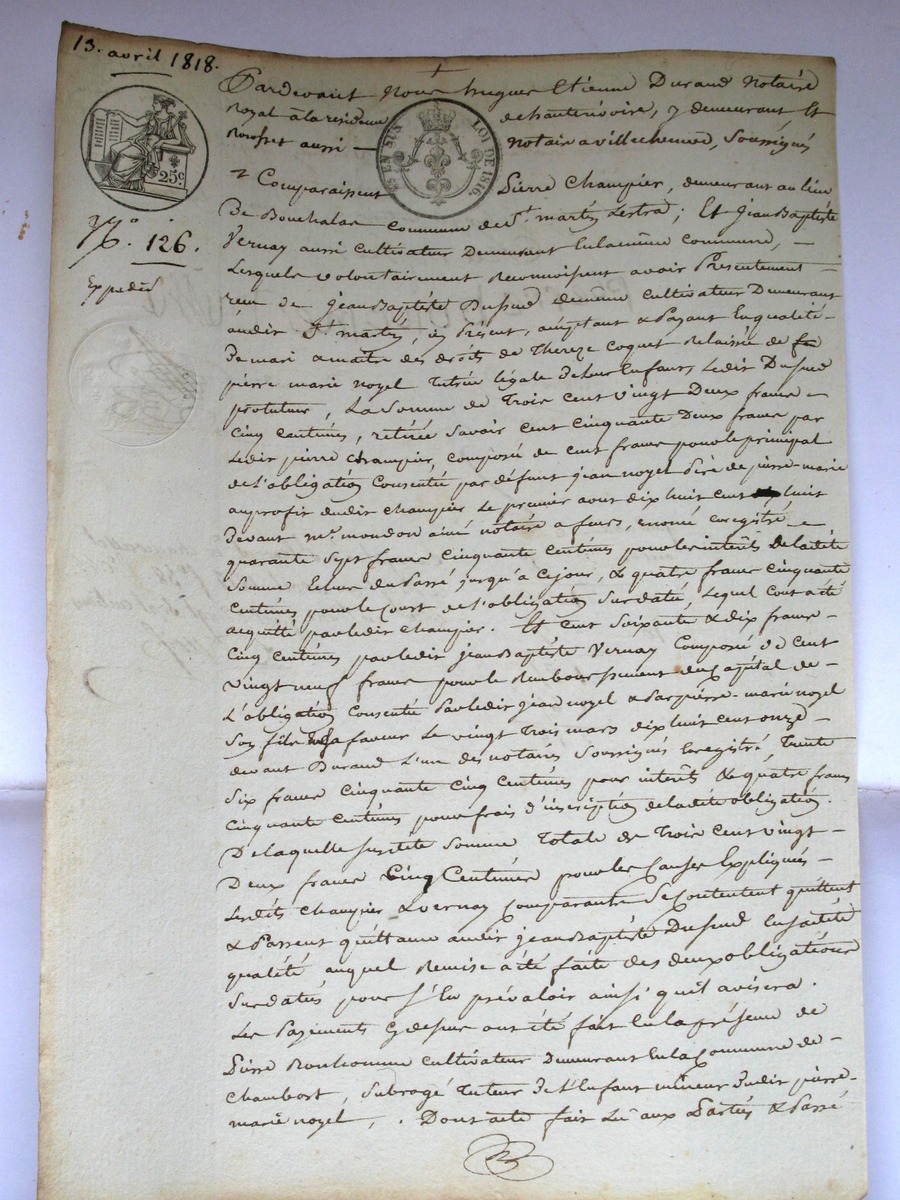 13. avril 1818.
Pardevant Nous hugues Etienne Durand Notaire
royal à la residence de hauterivoire, y demeurant, et
aussi notaire a villechenève, Soussignés
25c.
LOI DE 1816.
Comparaissent Pierre Champier, demeurant au lieu
De Bouchalas commune de St. martin Lestra; Et Jean Baptiste
No. 126.
Vernay aussi cultivateur Demeurant En la même commune, —
Expédié
Lesquels volontairement Reconnoissent avoir Présentement
reçu de Jean Baptiste Dusud demême cultivateur Demeurant
audit St. martin, ici Présent, acceptant & Payant En qualité
de mari & maitre des droits de Thereze Coquet Relaissée de
pierre marie noyel Tutrice légale de leur Enfants, Ledit Dusud
protuteur, La Somme de Trois Cent vingt Deux francs
Cinq Centimes, retirée Savoir cent Cinquante Deux francs par
Ledit pierre Champier, composé de cent francs pour le principal
de l'obligation Consentie par défunt jean noyel Père de pierre-marie
au profit dudit Champier Le premier aout dix huit cent huit
Devant me. moudon ainé notaire a feurs, Enregistré
quarante Sept francs Cinquante Centimes pour les intérêts de la dite
Somme Echus du Passé jusqu'à ce jour, & quatre francs cinquante
Centimes pour le Cout de l'obligation Sus datée, Lequel Cout a été
acquitté par ledit Champier. Et cent Soixante & dix francs
Cinq Centimes par ledit jean Baptiste Vernay Composé de Cent
vingt neuf francs pour le Remboursement du Capital de
L'obligation Consentie Par ledit jean noyel & Par pierre-marie noyel
Son fils a Sa faveur Le vingt Trois mars dix huit cent onze
devant Durand L'un des notaires Soussignés Enregistré Trente
Six francs Cinquante Cinq Centimes pour intérêts & quatre francs
Cinquante Centimes pour frais d'inscription de la dite obligation.
De laquelle susdite Somme Totale de Trois Cent vingt
Deux francs Cinq Centimes pour les Causes Expliquées
Lesdits Champier & Vernay Comparants Se Contentent quittent
& Passent quittance audit jean Baptiste Dusud En sa dite
qualité auquel Remise a été faite des deux obligations
Sus datés pour S'En prévaloir ainsi qu'il avisera.
Les Payements Cy dessus ont été fait En la présence de
Pierre Bonhomme Cultivateur Demeurant En la Commune de
Chambost, Subrogé Tuteur de l'Enfant mineur dudit pierre
marie noyel, . Dont acte fait Lu aux Parties & Passé